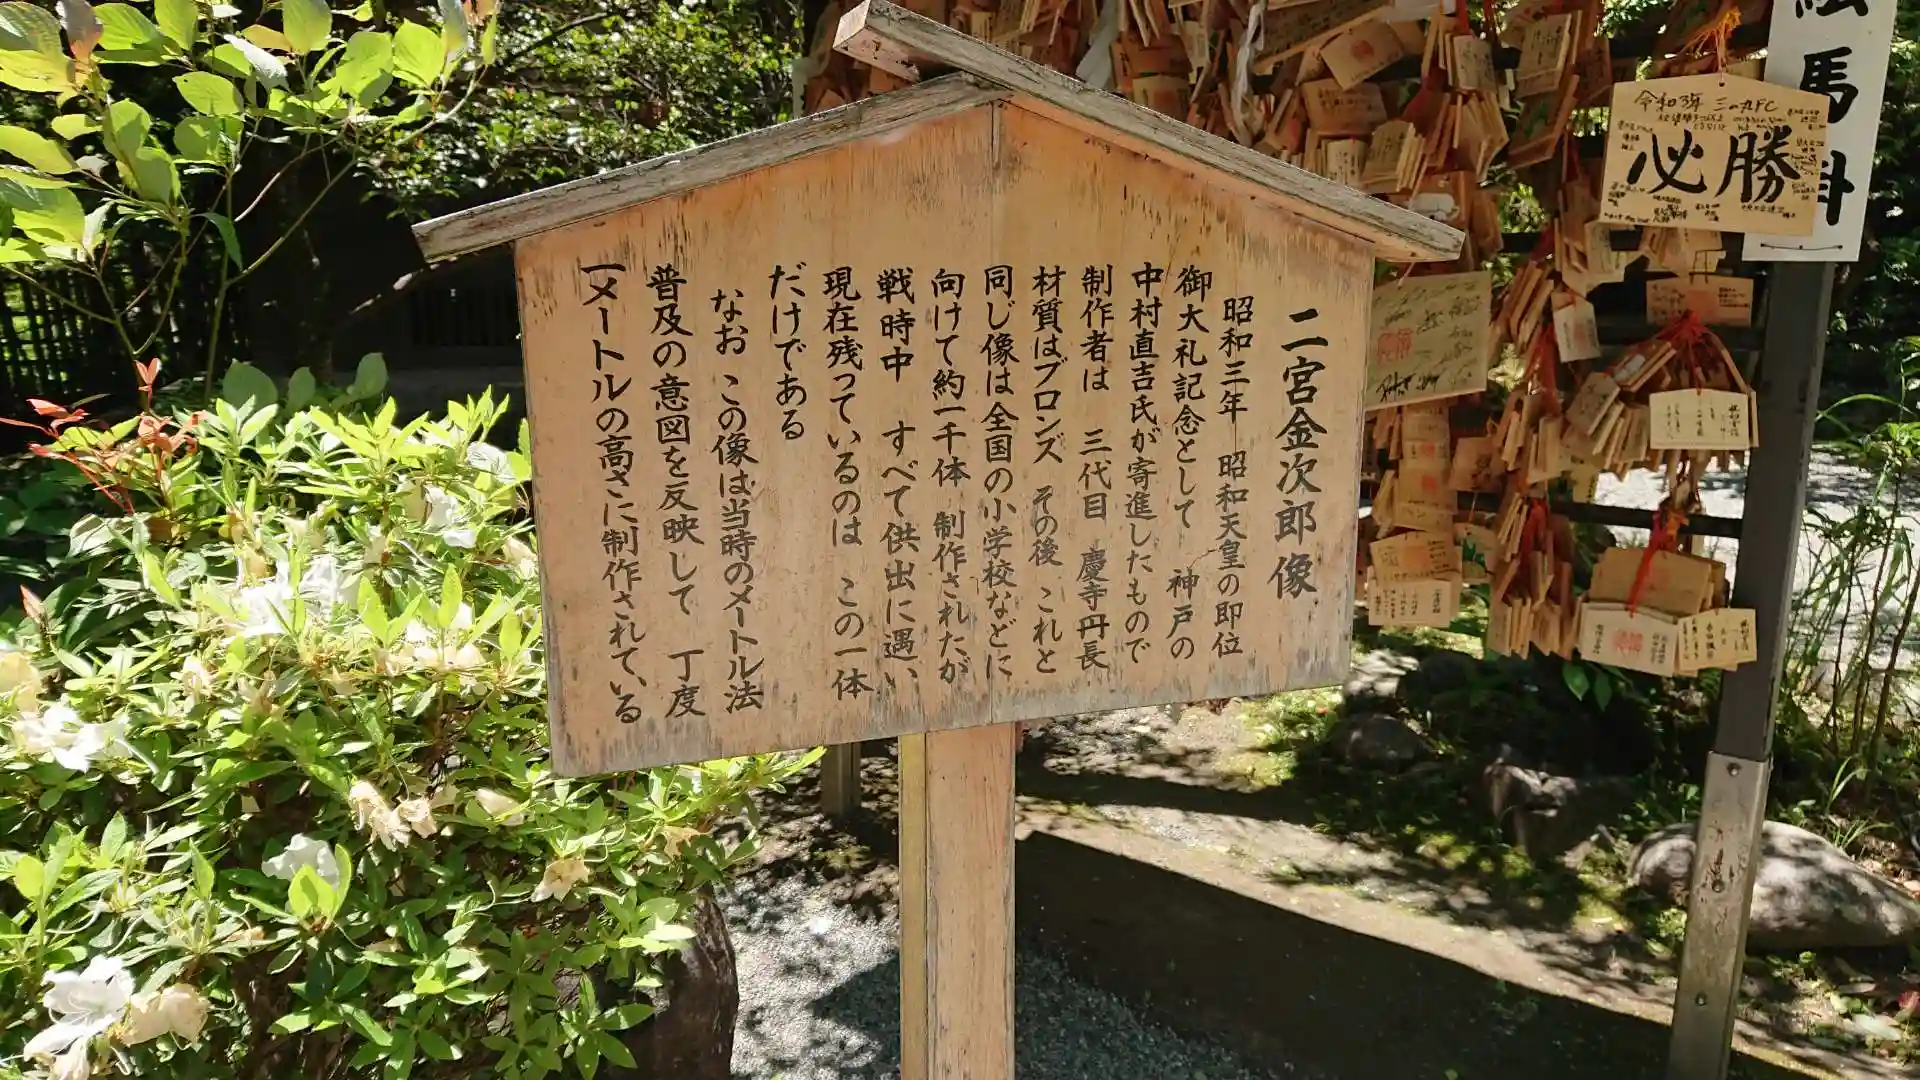 二宮金次郎像
昭和三年 昭和天皇の即位
御大礼記念として 神戸の
中村直吉氏が寄進したもので
制作者は 三代目 慶寺丹長
材質はブロンズ その後 これと
同じ像は全国の小学校などに
向けて約一千体 制作されたが
戦時中 すべて供出に遇い
現在残っているのは この一体
だけである
なお この像は当時のメートル法
普及の意図を反映して 丁度
一メートルの高さに制作されている
絵馬掛
令和3年 三の丸FC
必勝